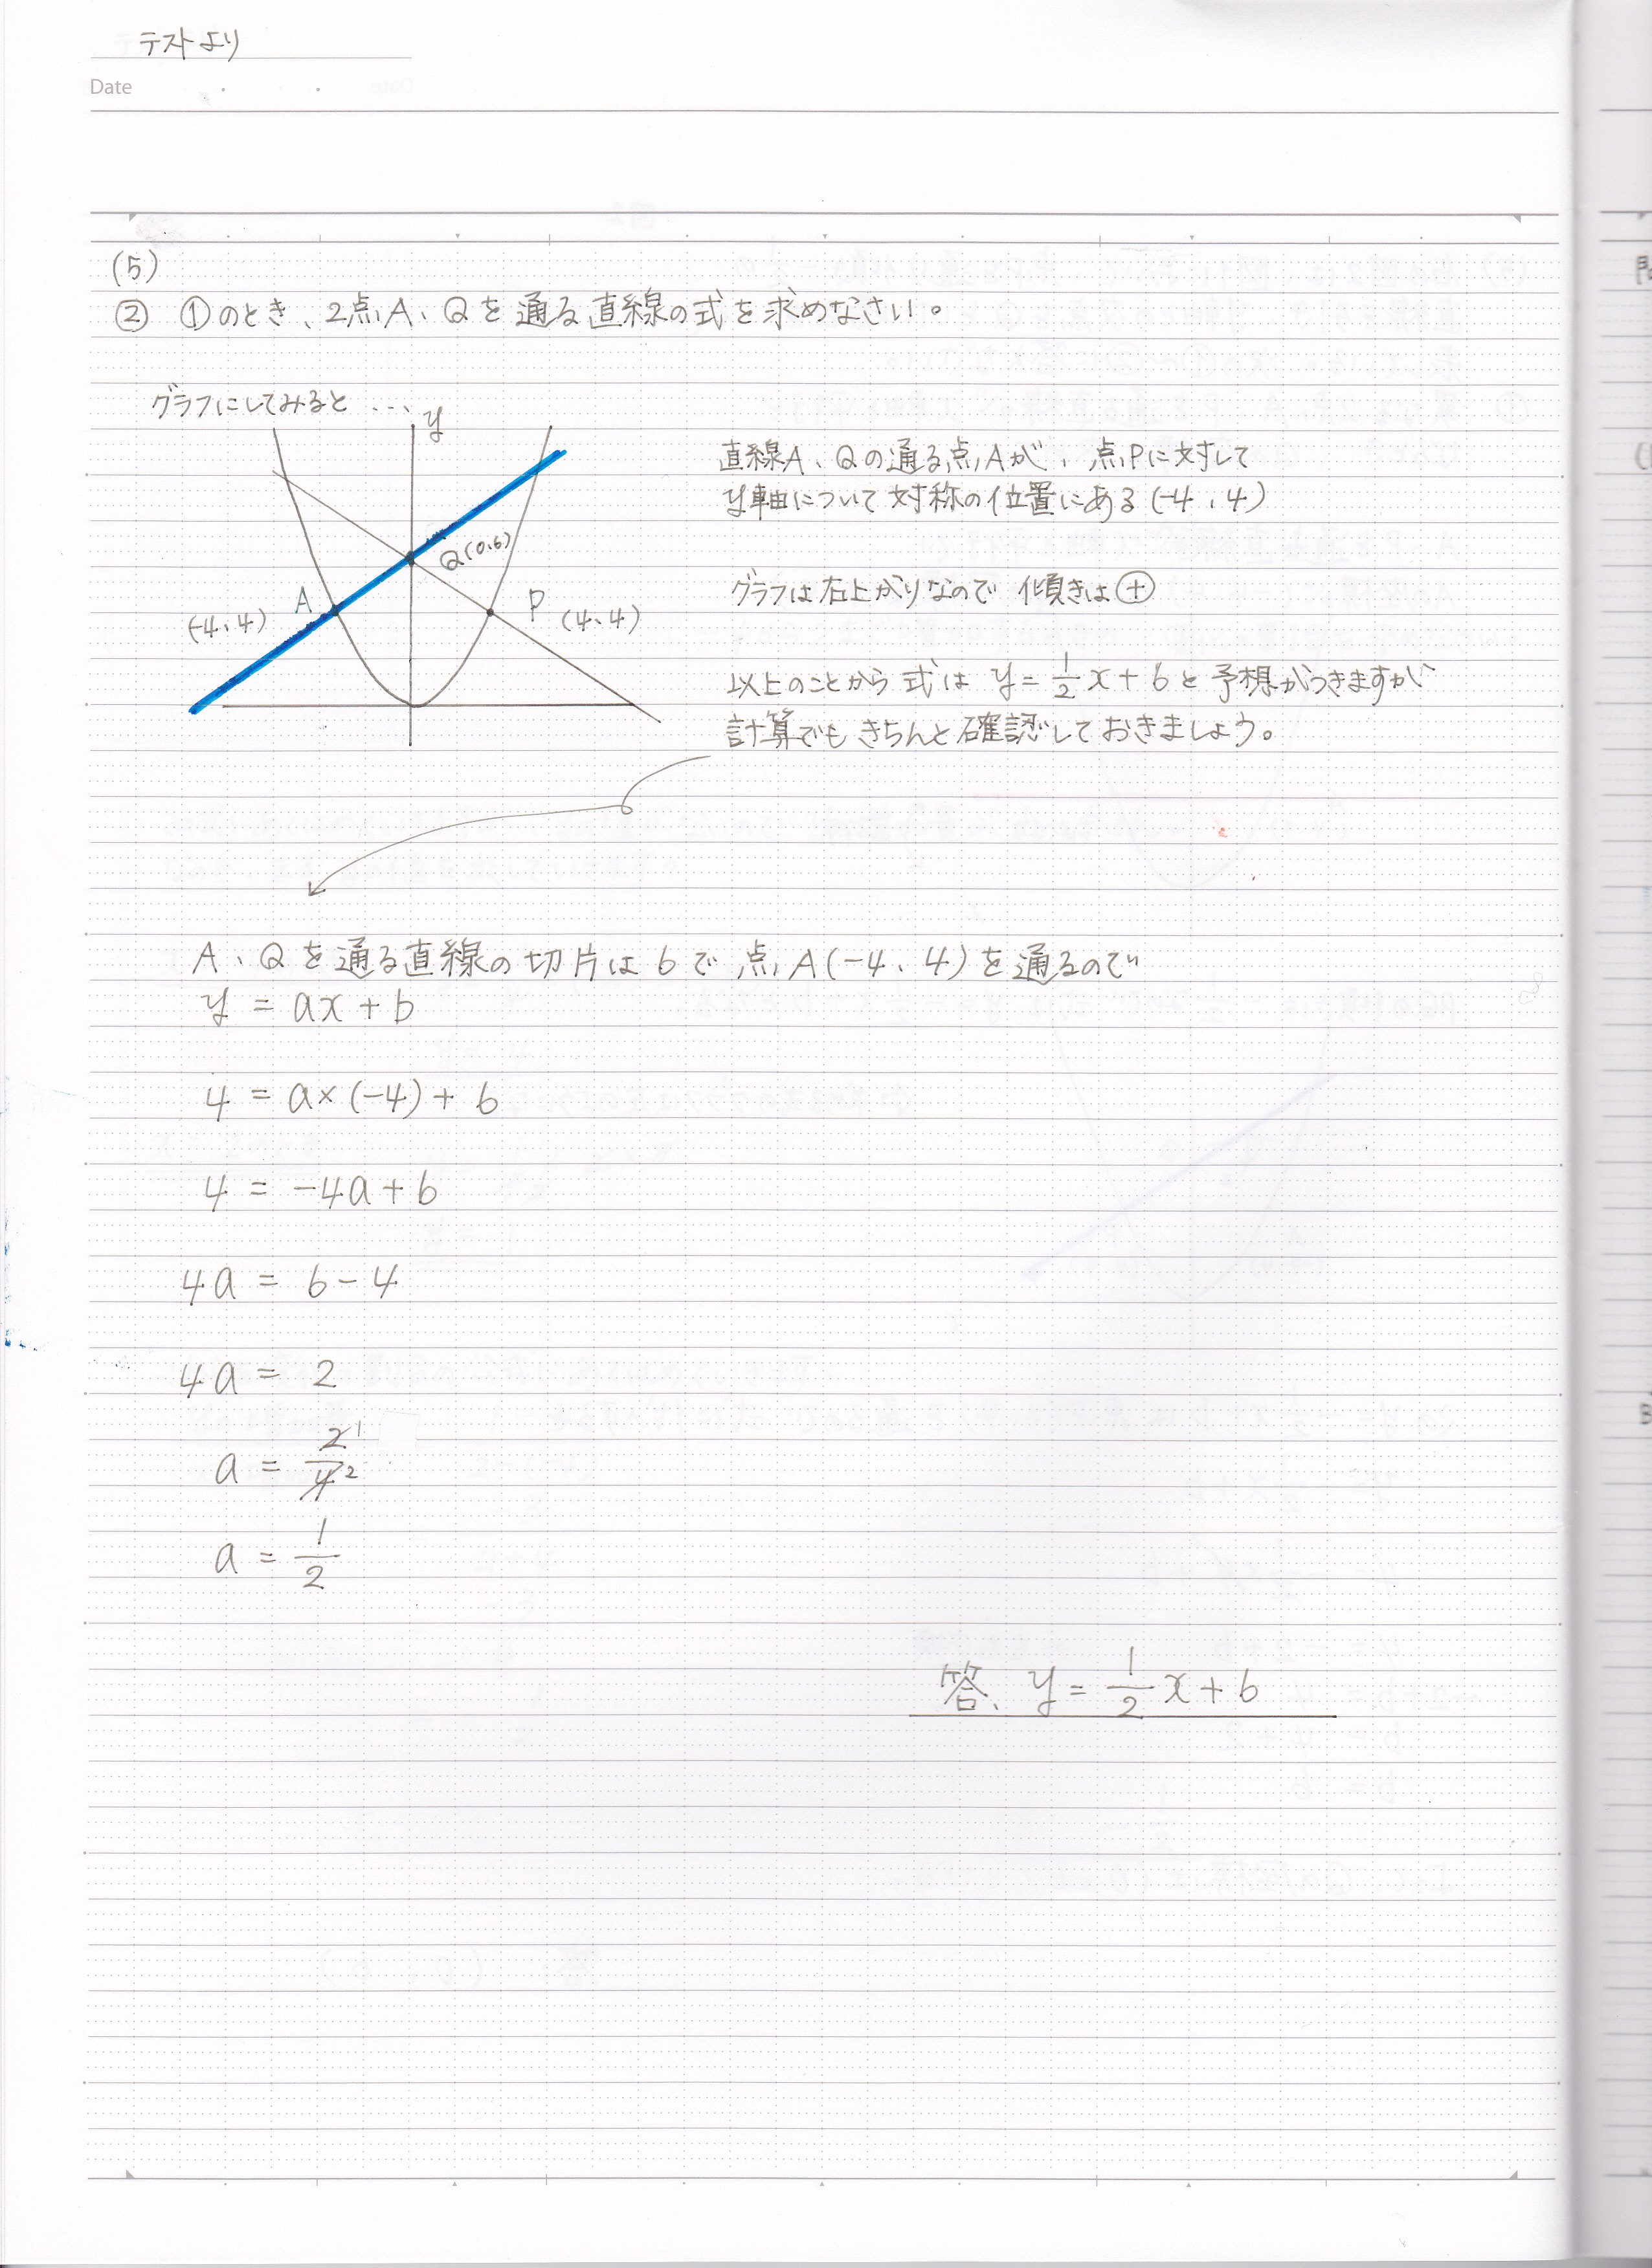 テストより
Date
(5)
② ①のとき、2点A、Qを通る直線の式を求めなさい。
グラフにしてみると ....
y
Q(0.6)
A
(-4、4)
P
(4、4)
直線A、Qの通る点Aが、点Pに対して
y軸について対称の位置にある(-4、4)
グラフは右上がりなので 傾きは⊕
以上のことから式は y=1/2x+6と予想がつきますが
計算でもきちんと確認しておきましょう。
A、Qを通る直線の切片は6で 点A(-4、4)を通るので
y = ax+b
4 = a×(-4)+6
4 = -4a+6
4a = 6-4
4a = 2
a = 2/4 1 2
a = 1/2
答、y=1/2x+6